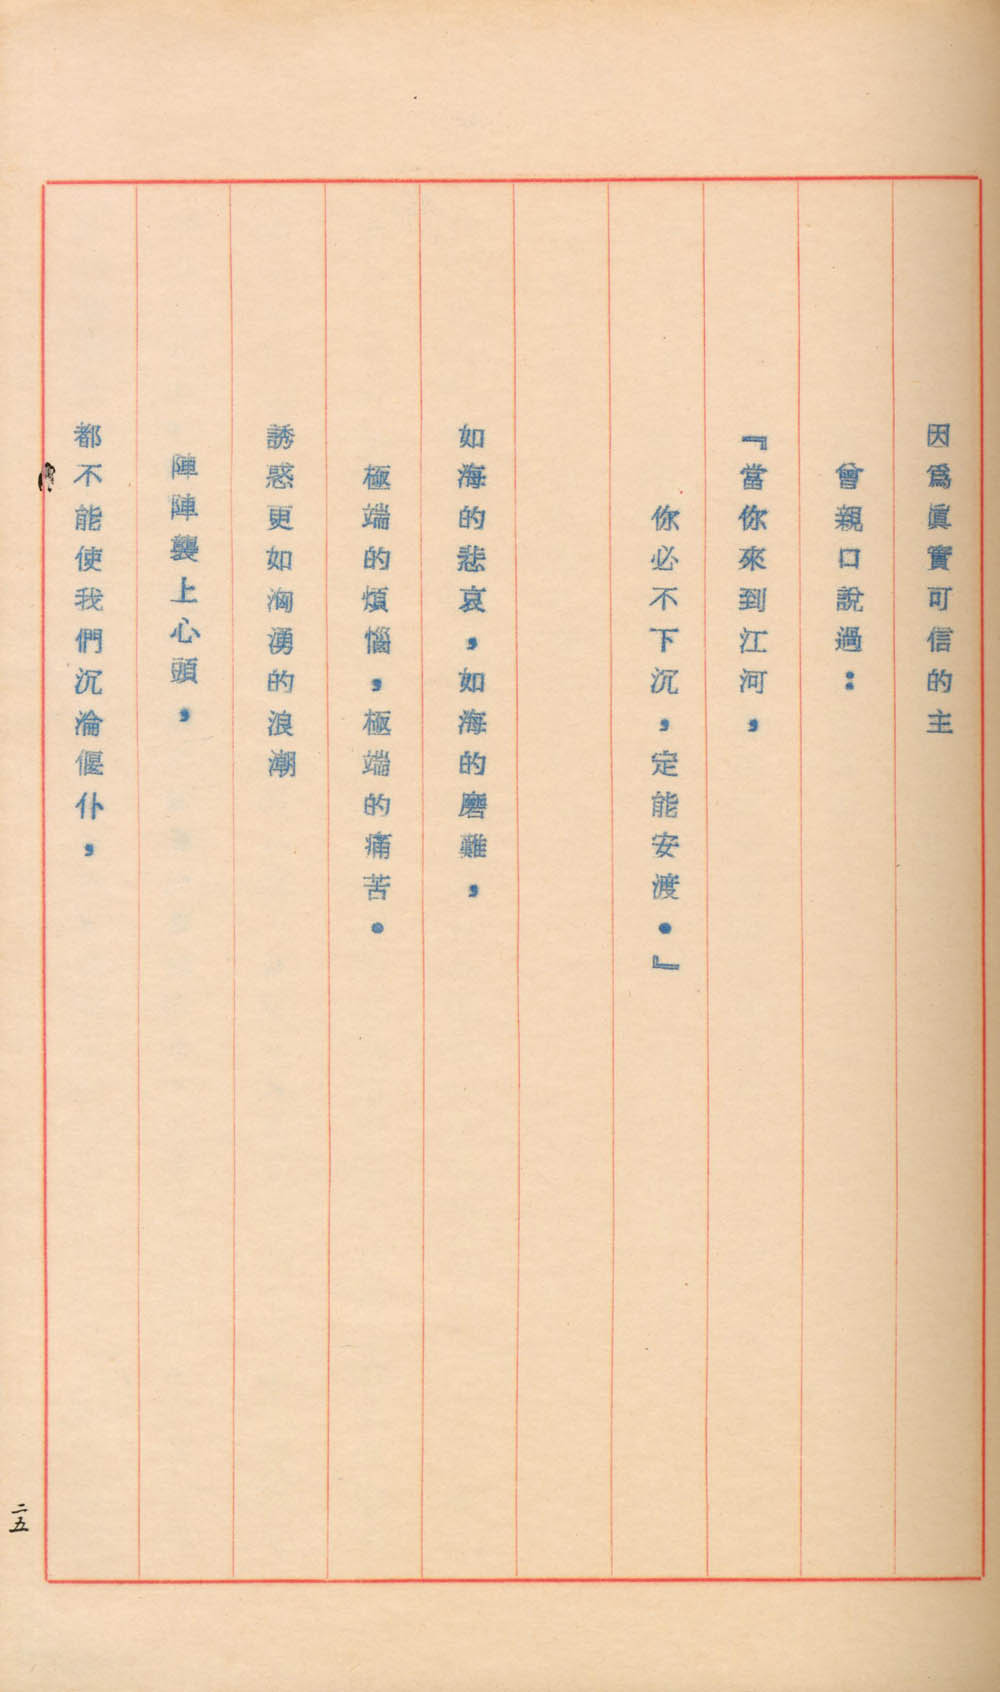 因爲眞實可信的主
曾親口說過：
『當你來到江河，
你必不下沉，定能安渡．』
如海的悲哀，如海的磨難，
極端的煩惱，極端的痛苦．
誘惑更如洶湧的浪潮
陣陣襲上心頭，
都不能使我們沉淪偃仆，
二五